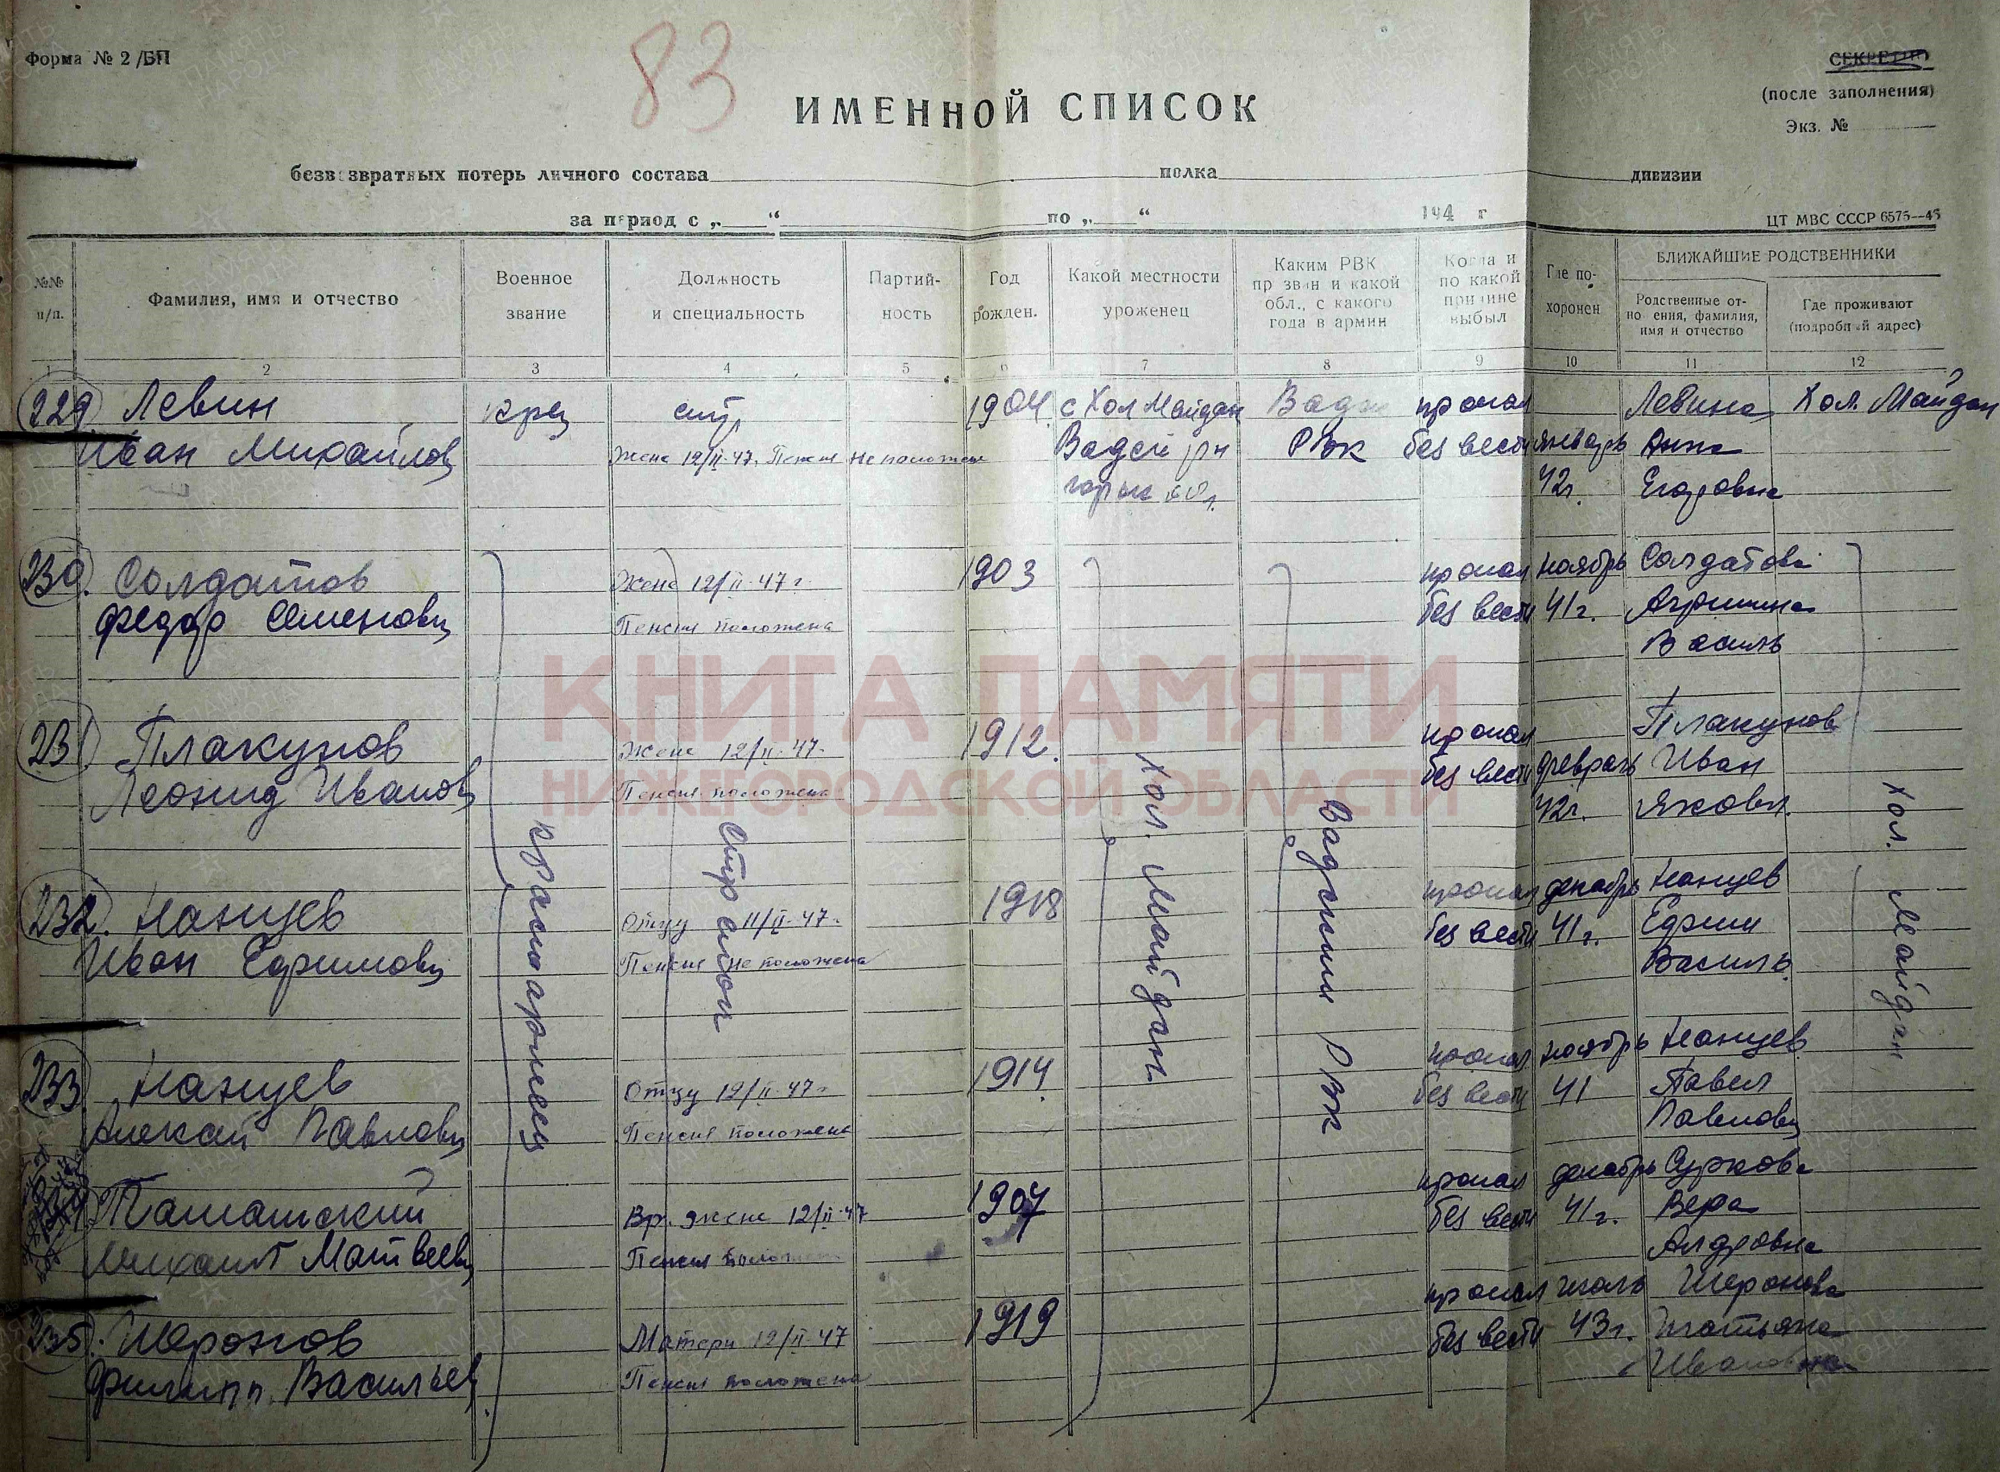 Форма № 2/БП
83
СЕКРЕТНО
(после заполнения)
Экз. №
ИМЕННОЙ СПИСОК
безвозвратных потерь личного состава полка дивизии
за период с „ “ по „ “ 194 г
ЦТ МВС СССР 6575—45
№№ п/п.
Фамилия, имя и отчество
Военное звание
Должность и специальность
Партий-ность
Год рожден.
Какой местности уроженец
Каким РВК призван и какой обл., с какого года в армии
Когда и по какой причине выбыл
Где по-хоронен
БЛИЖАЙШИЕ РОДСТВЕННИКИ
Родственные от-ношения, фамилия, имя и отчество
Где проживают (подробный адрес)
1 2 3 4 5 6 7 8 9 10 11 12
229. Левин крец стр 1904 с Хол Майдан Вадск пропал Левина Хол. Майдан
Иван Михайлов Жене 12/II-47. Пенсия не положена Вадск рн РВК без вести январь Анна
горьк обл. 42г. Егоровна
230. Солдатов Жене 12/II-47г 1903 пропал ноябрь Солдатова
Федор Семенович Пенсия положена без вести 41г. Агрипина
Василь
231. Плакунов Жене 12/II-47- 1912. пропал Плакунов
Леонид Иванов Пенсия положена без вести февраль Иван
42г. Яковл.
232. Нанцев Отцу 11/II-47- 1918 пропал декабрь Нанцев
Иван Ефимович Пенсия не положена без вести 41г. Ефим
Василь
233 Нанцев Отцу 12/II-47г 1914 пропал ноябрь Нанцев
Алексей Павлович Пенсия положена без вести 41 Павел
Павлович
Талатский Вр. жене 12/II-47 1907 пропал декабрь Суркова
Михаил Матвеевич Пенсия положена без вести 41г. Вера
Алдровна
235. Шеронов Матери 12/II-47 1919 пропал июль Шеронова
Филипп. Васильев Пенсия положена без вести 43г. Татьяна
Ивановна
красноармеец
Стрелок
Хол. Майдан.
Вадским РВК
Хол. Майдан
КНИГА ПАМЯТИ
НИЖЕГОРОДСКОЙ ОБЛАСТИ
ПАМЯТЬ НАРОДА